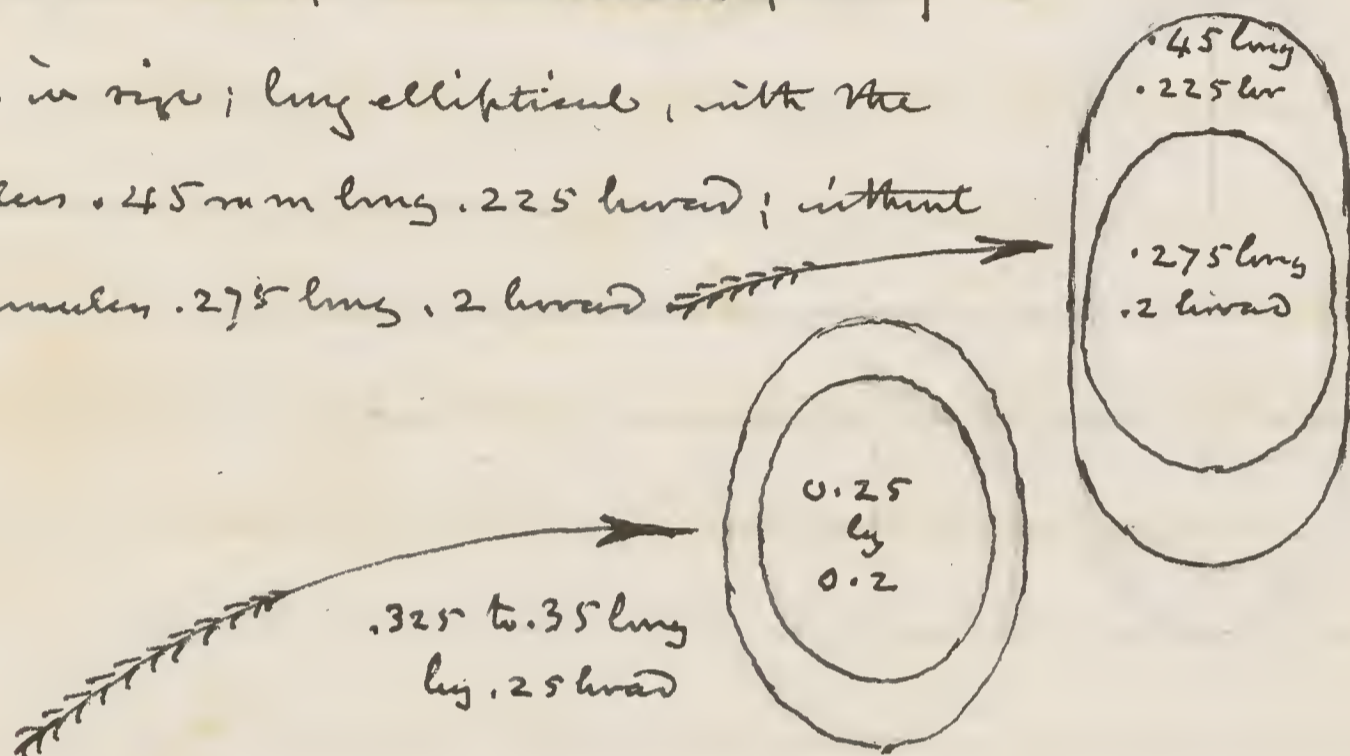 in size; long elliptical, with the
.45 mm long .225 broad; without
.275 long .2 broad
.45 long
.225 br
.275 long
.2 broad
0.25
by
0.2
.325 to .35 long
by .25 broad